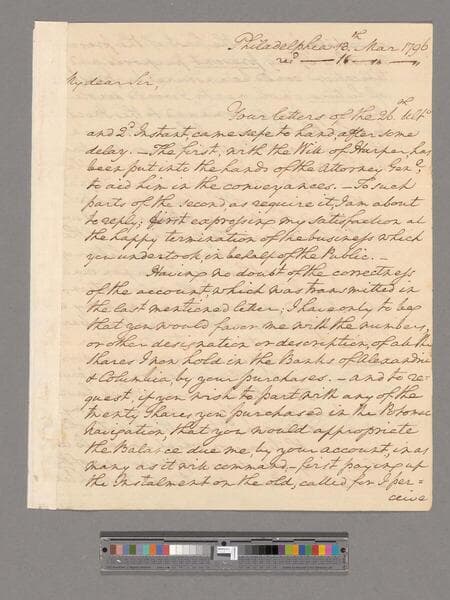 Philadelphia 13th Mar 1796
rec'd — 16 — " — "
My dear Sir,
Your letters of the 26th Ulto
and 2d Instant, came safe to hand, after some
delay. — The first, with the Will of Harper, has
been put into the hands of the Attorney Genl
to aid him in the conveyances. — To such
parts of the second as require it, I am about
to reply; first expressing my satisfaction at
the happy termination of the business which
you undertook in behalf of the Public. —
Having no doubt of the correctness
of the account, which was transmitted in
the last mentioned letter; I have only to beg
that you would favor me with the numbers,
or other designation or description, of all the
shares I now hold in the Banks of Alexandria
& Columbia, by your purchases. — and to re-
quest, if you wish to part with any of the
twenty shares, you purchased in the Potomac
navigation, that you would appropriate
the Balance due me, by your account, in as
many as it will command, — first paying up
the Instalment on the old, called for I per=
ceive